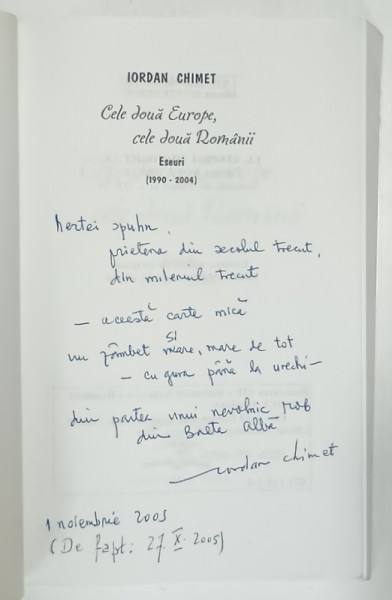 IORDAN CHIMET
Cele două Europe,
cele două Românii
Eseuri
(1990 - 2004)
Hertei Spuhn,
prietena din secolul trecut,
din mileniul trecut
— această carte mică
un zâmbet și mare, mare de tot
— cu gura până la urechi —
din partea unui nevolnic rob
din Balta Albă
Iordan Chimet
1 noiembrie 2005
(De fapt: 27 X 2005)